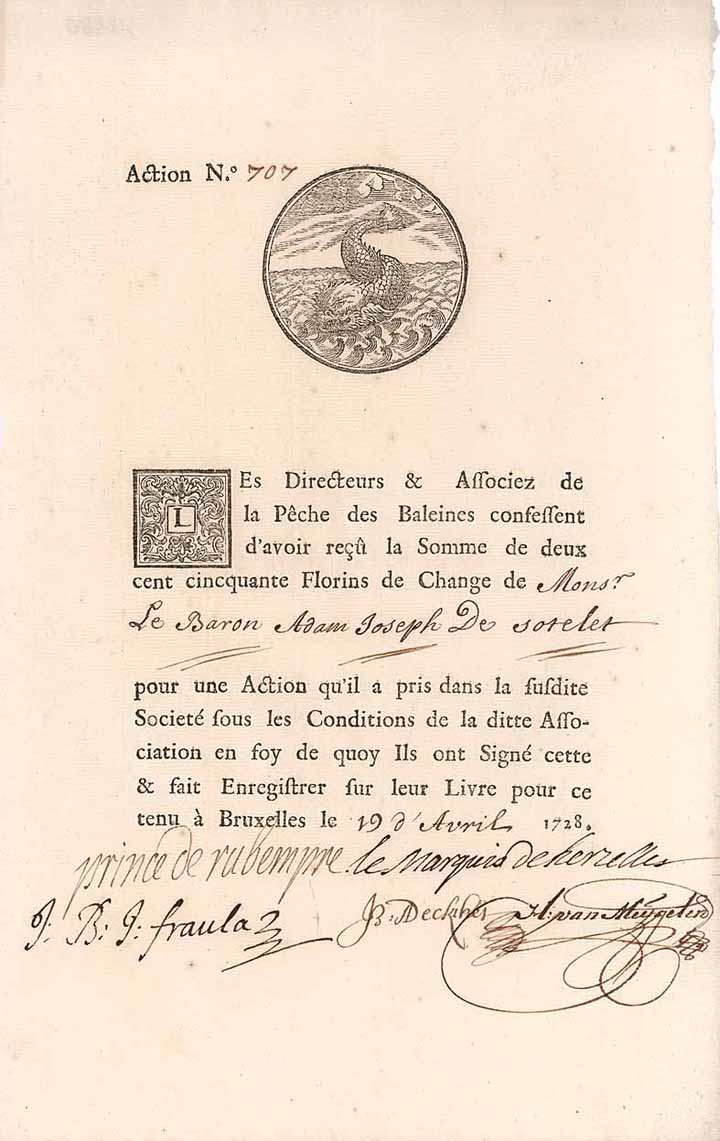 Action N.º 707
LEs Directeurs & Aſſociez de
la Pêche des Baleines confeſſent
d'avoir reçû la Somme de deux
cent cincquante Florins de Change de Mons.r
Le Baron Adam Joseph De sotelet
pour une Action qu'il a pris dans la ſuſdite
Societé ſous les Conditions de la ditte Aſſo-
ciation en foy de quoy Ils ont Signé cette
& fait Enregiſtrer ſur leur Livre pour ce
tenu à Bruxelles le 19 d'Avril 1728.
prince de rubempre. le Marquis de herzelles
J: B: J: fraula